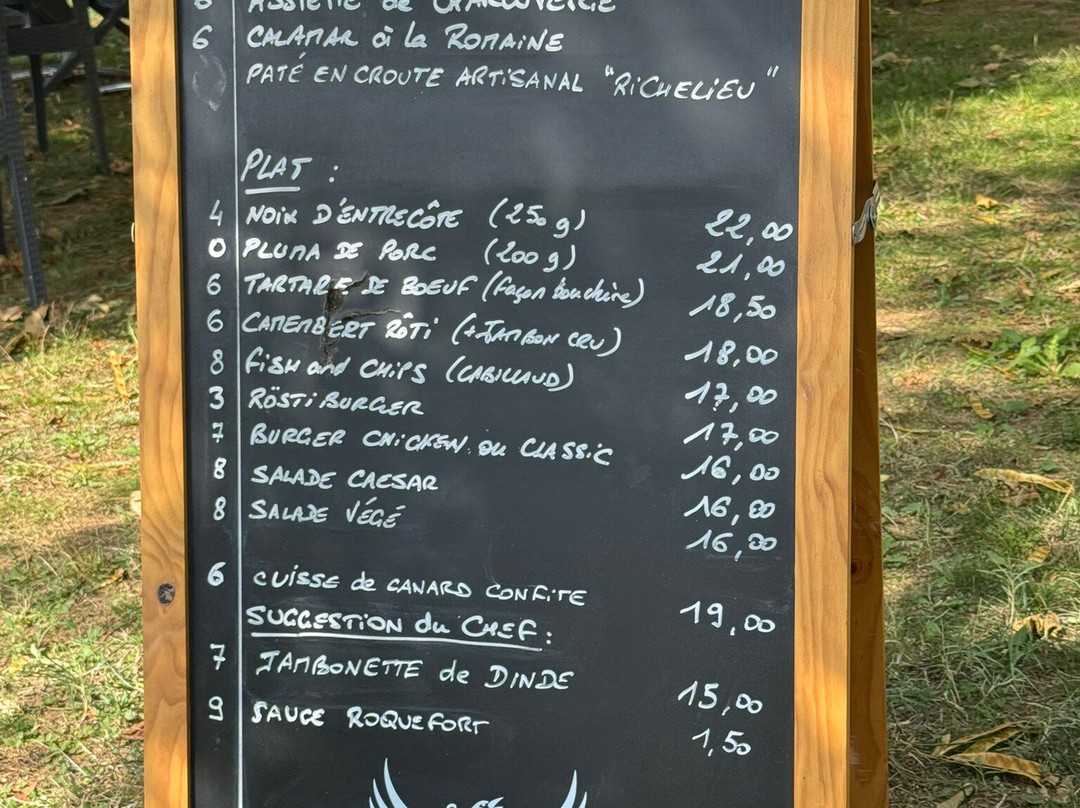 6 ASSIETTE de CHARCUTERIE
6 CALAMAR à la ROMAINE
PATÉ EN CROUTE ARTISANAL "RICHELIEU"
PLAT :
4 NOIX D'ENTRECÔTE (250 g) 22,00
0 PLUMA DE PORC (200 g) 21,00
6 TARTARE DE BOEUF (façon bouchère) 18,50
6 CAMEMBERT RÔTI (+JAMBON CRU) 18,00
8 FISH and CHIPS (CABILLAUD) 17,00
3 RÖSTI BURGER 17,00
7 BURGER CHICKEN ou CLASSIC 16,00
8 SALADE CAESAR 16,00
8 SALADE VÉGÉ 16,00
6 CUISSE de CANARD CONFITE 19,00
SUGGESTION du CHEF :
7 JAMBONETTE de DINDE 15,00
9 SAUCE ROQUEFORT 1,50